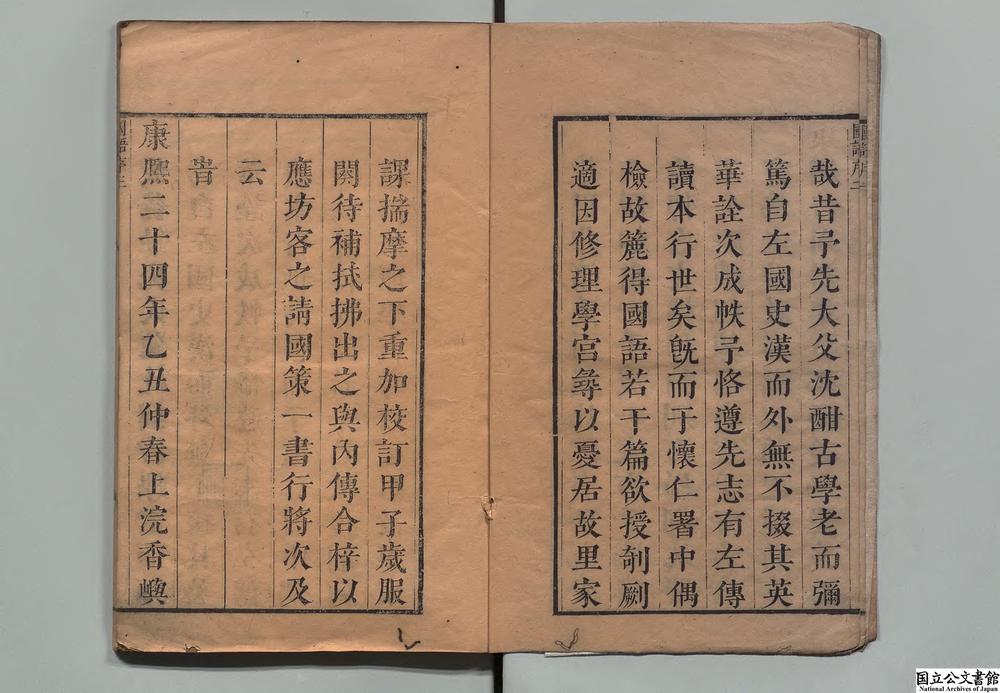 哉昔予先大父沈酣古學老而彌
篤自左國史漢而外無不掇其英
華詮次成帙予恪遵先志有左傳
讀本行世矣旣而于懷仁署中偶
檢故簏得國語若干篇欲授剞劂
適因修理學宮尋以憂居故里家
課揣摩之下重加校訂甲子歲服
闋待補拭拂出之與內傳合梓以
應坊客之請國策一書行將次及
云
旹
康熈二十四年乙丑仲春上浣香嶼
国立公文書館
National Archives of Japan